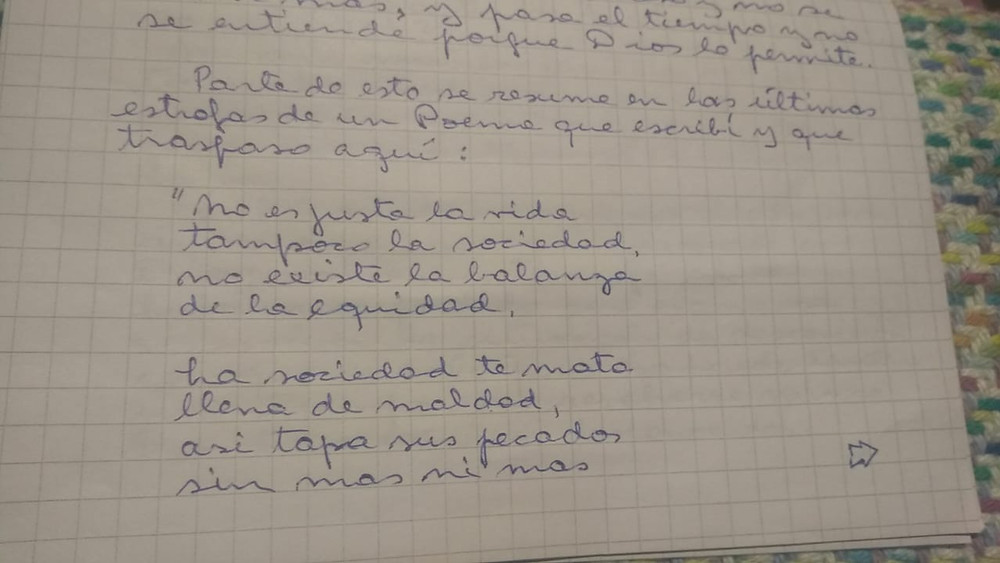 mas, y y no se
se entiende pasa el tiempo y no
porque Dios lo permite.
Parte de esto se resume en las últimas
estrofas de un Poema que escribí y que
traspaso aquí:
"No es justa la vida
tampoco la sociedad,
no existe la balanza
de la equidad,
La sociedad te mata
llena de maldad,
asi tapa sus pecados
sin mas ni mas